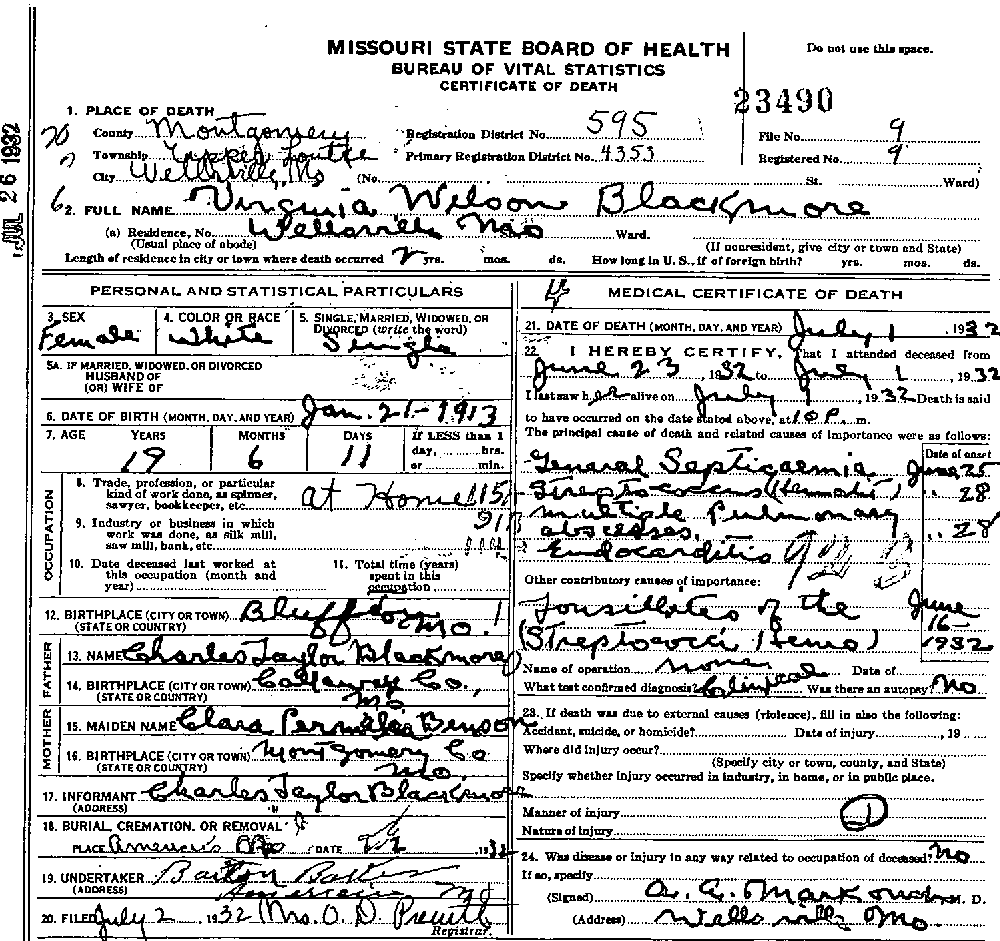 MISSOURI STATE BOARD OF HEALTH
BUREAU OF VITAL STATISTICS
CERTIFICATE OF DEATH
Do not use this space.
23490
JUL 26 1932
1. PLACE OF DEATH
County Montgomery Registration District No. 595 File No. 9
Township Upper Loutre Primary Registration District No. 4353 Registered No. 9
City Wellsville, Mo (No. St. Ward)
2. FULL NAME Virginia Wilson Blackmore
(a) Residence, No. Wellsville Mo St. Ward.
(Usual place of abode) (If nonresident, give city or town and State)
Length of residence in city or town where death occurred 2 yrs. mos. ds. How long in U. S., if of foreign birth? yrs. mos. ds.
PERSONAL AND STATISTICAL PARTICULARS
3. SEX Female
4. COLOR OR RACE White
5. SINGLE, MARRIED, WIDOWED, OR DIVORCED (write the word) Single
5A. IF MARRIED, WIDOWED, OR DIVORCED
HUSBAND OF
(OR) WIFE OF
6. DATE OF BIRTH (MONTH, DAY, AND YEAR) Jan. 21-1913
7. AGE YEARS MONTHS DAYS If LESS than 1
day, hrs.
or min.
19 6 11
OCCUPATION
8. Trade, profession, or particular
kind of work done, as spinner,
sawyer, bookkeeper, etc. at Home
9. Industry or business in which
work was done, as silk mill,
saw mill, bank, etc.
10. Date deceased last worked at
this occupation (month and
year)
11. Total time (years)
spent in this
occupation
12. BIRTHPLACE (CITY OR TOWN) Bluffton
(STATE OR COUNTRY) Mo.
FATHER
13. NAME Charles Taylor Blackmore
14. BIRTHPLACE (CITY OR TOWN) Callaway Co.,
(STATE OR COUNTRY) Mo
MOTHER
15. MAIDEN NAME Clara Permelia Benson
16. BIRTHPLACE (CITY OR TOWN) Montgomery Co
(STATE OR COUNTRY) Mo.
17. INFORMANT Charles Taylor Blackmore
(ADDRESS)
18. BURIAL, CREMATION, OR REMOVAL
PLACE Americus Mo DATE 1932
19. UNDERTAKER Barton
(ADDRESS) Americus Mo
20. FILED July 2, 1932 Mrs. O. D. Prewitt
Registrar.
MEDICAL CERTIFICATE OF DEATH
21. DATE OF DEATH (MONTH, DAY, AND YEAR) July 1, 1932
22. I HEREBY CERTIFY, That I attended deceased from
June 23, 1932 to July 1, 1932
I last saw her alive on July 1, 1932 Death is said
to have occurred on the date stated above, at 10 P. m.
The principal cause of death and related causes of importance were as follows:
Date of onset
General Septicaemia June 25
Streptococcus (Hemoli) " 28
multiple Pulmonary " 28
abscesses.
Endocarditis
Other contributory causes of importance:
Tonsillitis of the June
16-
(Streptococci (Hemo) 1932
Name of operation none Date of
What test confirmed diagnosis? Clinical Was there an autopsy? No
23. If death was due to external causes (violence), fill in also the following:
Accident, suicide, or homicide? Date of injury , 19
Where did injury occur?
(Specify city or town, county, and State)
Specify whether injury occurred in industry, in home, or in public place.
Manner of injury
Nature of injury
24. Was disease or injury in any way related to occupation of deceased? No
If so, specify
(Signed) M. D.
(Address) Wellsville Mo